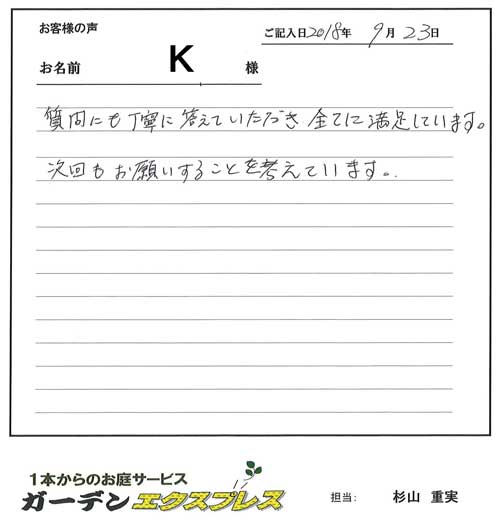 お客様の声
ご記入日2018年 9月 23日
お名前 K 様
質問にも丁寧に答えていただき 全てに満足しています。
次回もお願いすることを考えています。
1本からのお庭サービス
ガーデンエクスプレス
担当: 杉山 重実